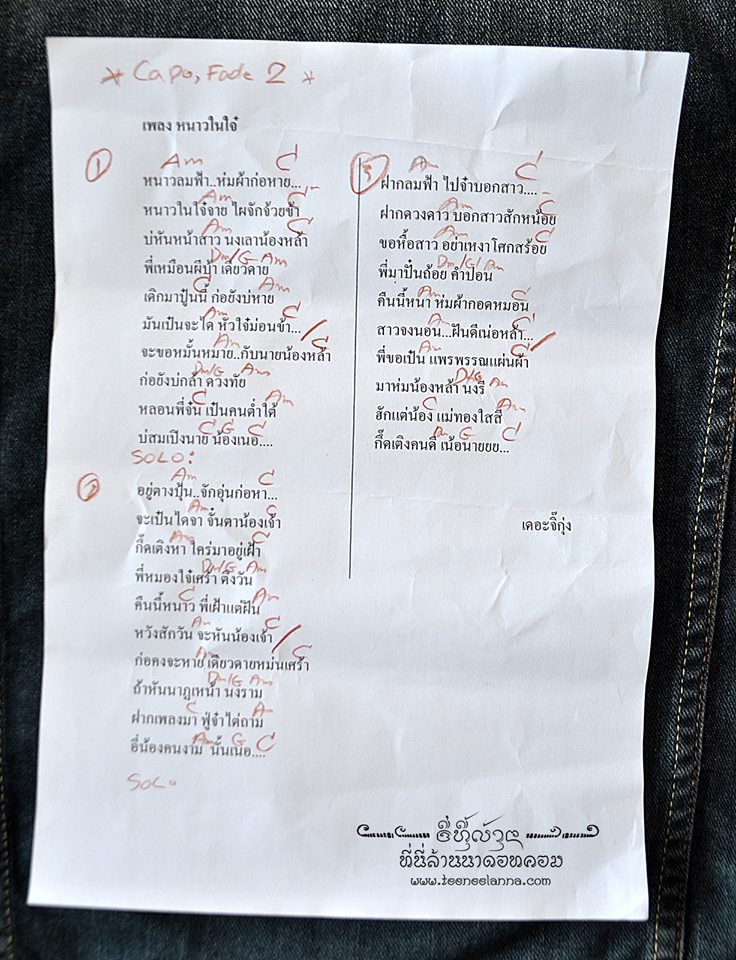 * Capo, Fade 2 *
เพลง หนาวในใจ๋
1
Am C
หนาวลมฟ้า..ห่มผ้าก่อหาย...
Am C
หนาวในใจ๋จาย ไผจักจ้วยข้า
Am C
บ่หันหน้าสาว นงเลาน้องหล้า
Dm/G Am
พี่เหมือนผีบ้า เดียวดาย
C Am
เดิกมาปู๊นนี้ ก่อยังบ่หาย
Am C
มันเป็นจะได๋ หัวใจ๋ม่อนข้า... /
Am C
จะขอหมั้นหมาย..กับนายน้องหล้า
Dm/G Am
ก่อยังบ่กล้า ดวงทัย
C Am
หลอนพี่จั๋น เป็นคนต่ำใต้
C G C
บ่สมเปิงนาย น้องเนอ....
SOLO:
2
Am C
อยู่ตางปุ้น..จักอุ่นก่อหา...
Am C
จะเป็นใดจา จั๋นตาน้องเจ้า
Am C
กึ๊ดเติงหา ใคร่มาอยู่เฝ้า
Dm/G Am
พี่หมองใจ๋เศร้า ตึงวัน
C Am
คืนนี้หนาว พี่เฝ้าแต่ฝัน
Am C
หวังสักวัน จะหันน้องเจ้า /
Am C
ก่อคงจะหาย เดียวดายหม่นเศร้า
Dm/G Am
ถ้าหันนาฏเหน้า นงราม
C Am
ฝากเพลงมา ฟู่จ๋าไต่ถาม
Am G C
อี่น้องคนงาม นั้นเนอ....
SOLO
3
Am C
ฝากลมฟ้า ไปจ๋าบอกสาว....
Am C
ฝากดวงดาว บอกสาวสักหน้อย
Am C
ขอหื้อสาว อย่าเหงาโศกสร้อย
Dm/G/Am
พี่มาปั๋นถ้อย คำป้อน
C Am
คืนนี้หนา ห่มผ้ากอดหมอน
Am C
สาวจงนอน...ฝันดีเน่อหล้า... /
Am C
พี่ขอเป็น แพรพรรณแผ่นผ้า
Dm/G Am
มาห่มน้องหล้า นงรี
C Am
ฮักแต่น้อง แม่ทองใสสี
Am G C
กึ๊ดเติงคนดี เน้อนายยย...
เดอะจิ๊กุ่ง
ที่นี่ล้านนาดอทคอม
www.teeneelanna.com